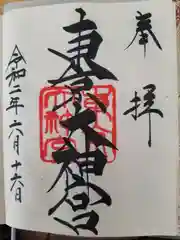 奉拝
東京大神宮
令和二年六月十六日